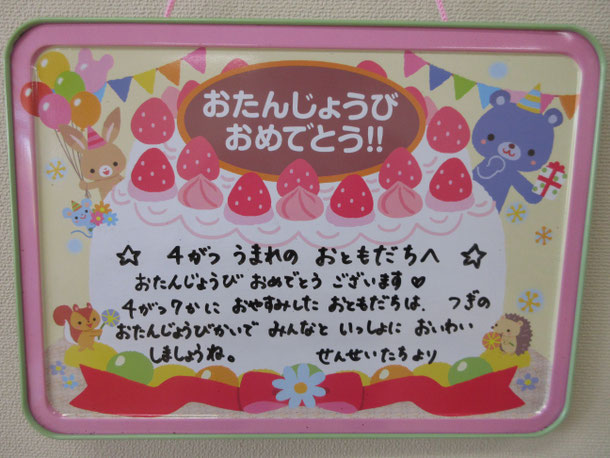 おたんじょうび
おめでとう!!
☆ 4がつ うまれの おともだちへ ☆
おたんじょうび おめでとう ございます♡
4がつ7かに おやすみした おともだちは、つぎの
おたんじょうびかいで みんなと いっしょに おいわい
しましょうね。 せんせいたちより